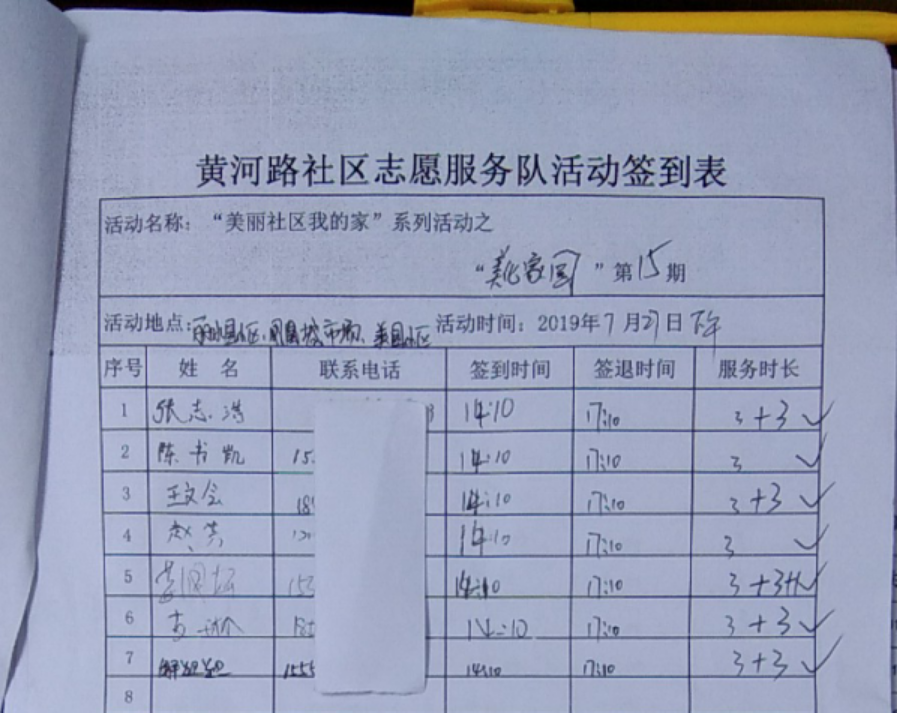 黄河路社区志愿服务队活动签到表
活动名称：“美丽社区我的家”系列活动之
“美化家园”第15期
活动地点： 活动时间：2019年7月27日 下午
序号 姓名 联系电话 签到时间 签退时间 服务时长
1 张志浩 14:10 17:10 3+3 ✓
2 陈书凯 15 14:10 17:10 3 ✓
3 王文会 18 14:10 17:10 3+3 ✓
4 赵 14:10 17:10 3 ✓
5 15 14:10 17:10 3+3 ✓
6 18 14:10 17:10 3+3 ✓
7 1555 14:10 17:10 3+3 ✓
8